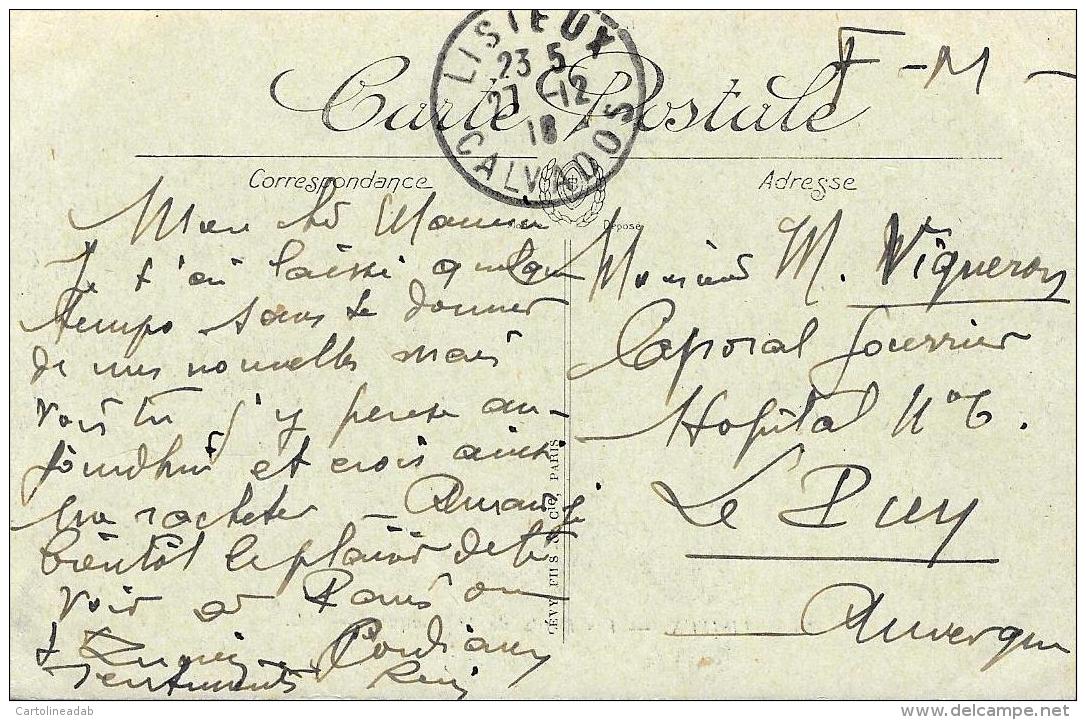 LISIEUX
23 5
27 -12
18
CALVADOS
F - M -
Carte Postale
Correspondance
Adresse
Déposé
Mon
Je t'ai laissé quelque
temps sans te donner
de mes nouvelles mais
vois tu j'y pense au-
jourdhui et crois ainsi
me racheter -
bientôt le plaisir de te
voir à Paris ou
Sentiments
Monsieur M. Vigneron
Caporal fourrier
Hopital N° 6.
Le Puy
Auvergne
LÉVY FILS & Cie, PARIS
Cartolineadab
delcampe.net